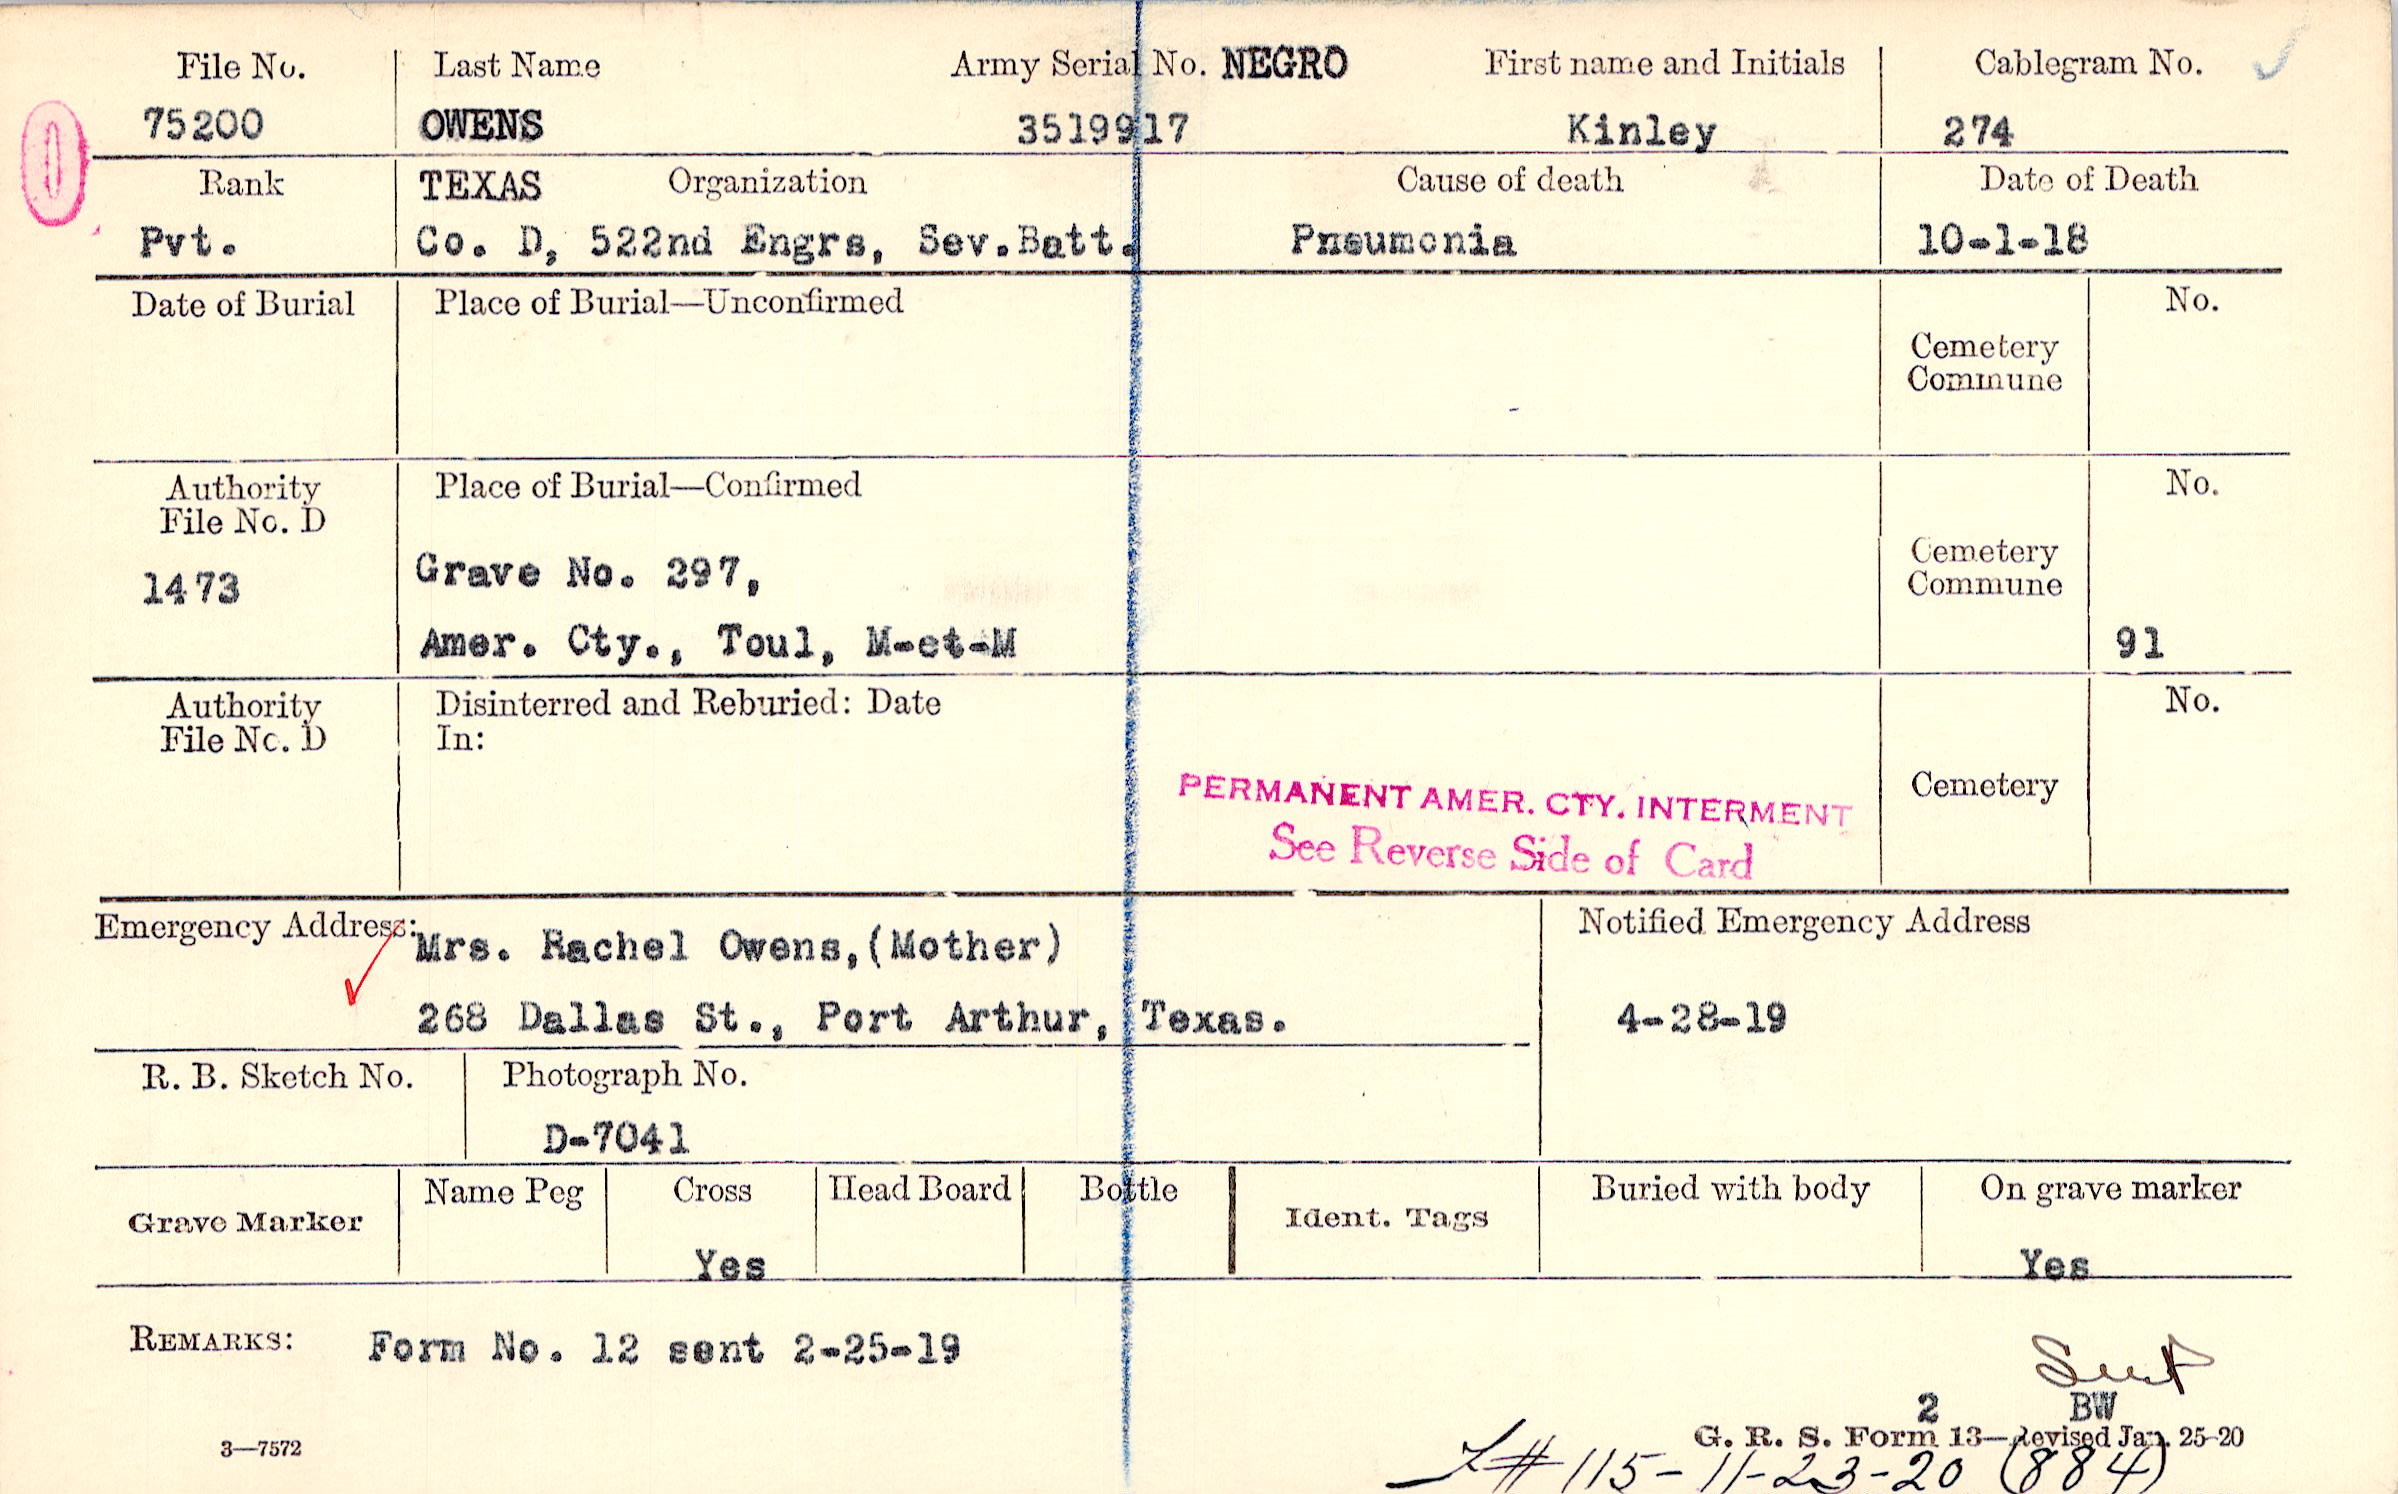 File No. Last Name Army Serial No. NEGRO First name and Initials Cablegram No.
75200 OWENS 3519917 Kinley 274
Rank TEXAS Organization Cause of death Date of Death
Pvt. Co. D, 522nd Engrs, Sev.Batt. Pneumonia 10-1-18
Date of Burial Place of Burial—Unconfirmed No.
Cemetery
Commune
Authority Place of Burial—Confirmed No.
File No. D
Cemetery
Commune
1473 Grave No. 297,
Amer. Cty., Toul, M-et-M 91
Authority Disinterred and Reburied: Date No.
File No. D In:
PERMANENT AMER. CTY. INTERMENT Cemetery
See Reverse Side of Card
Emergency Address: Mrs. Rachel Owens,(Mother) Notified Emergency Address
268 Dallas St., Port Arthur, Texas. 4-28-19
R. B. Sketch No. Photograph No.
D-7041
Grave Marker Name Peg Cross Head Board Bottle Ident. Tags Buried with body On grave marker
Yes Yes
REMARKS: Form No. 12 sent 2-25-19
2 BW
3—7572 G. R. S. Form 13—Revised Jan. 25-20
# 115-11-23-20 (884)